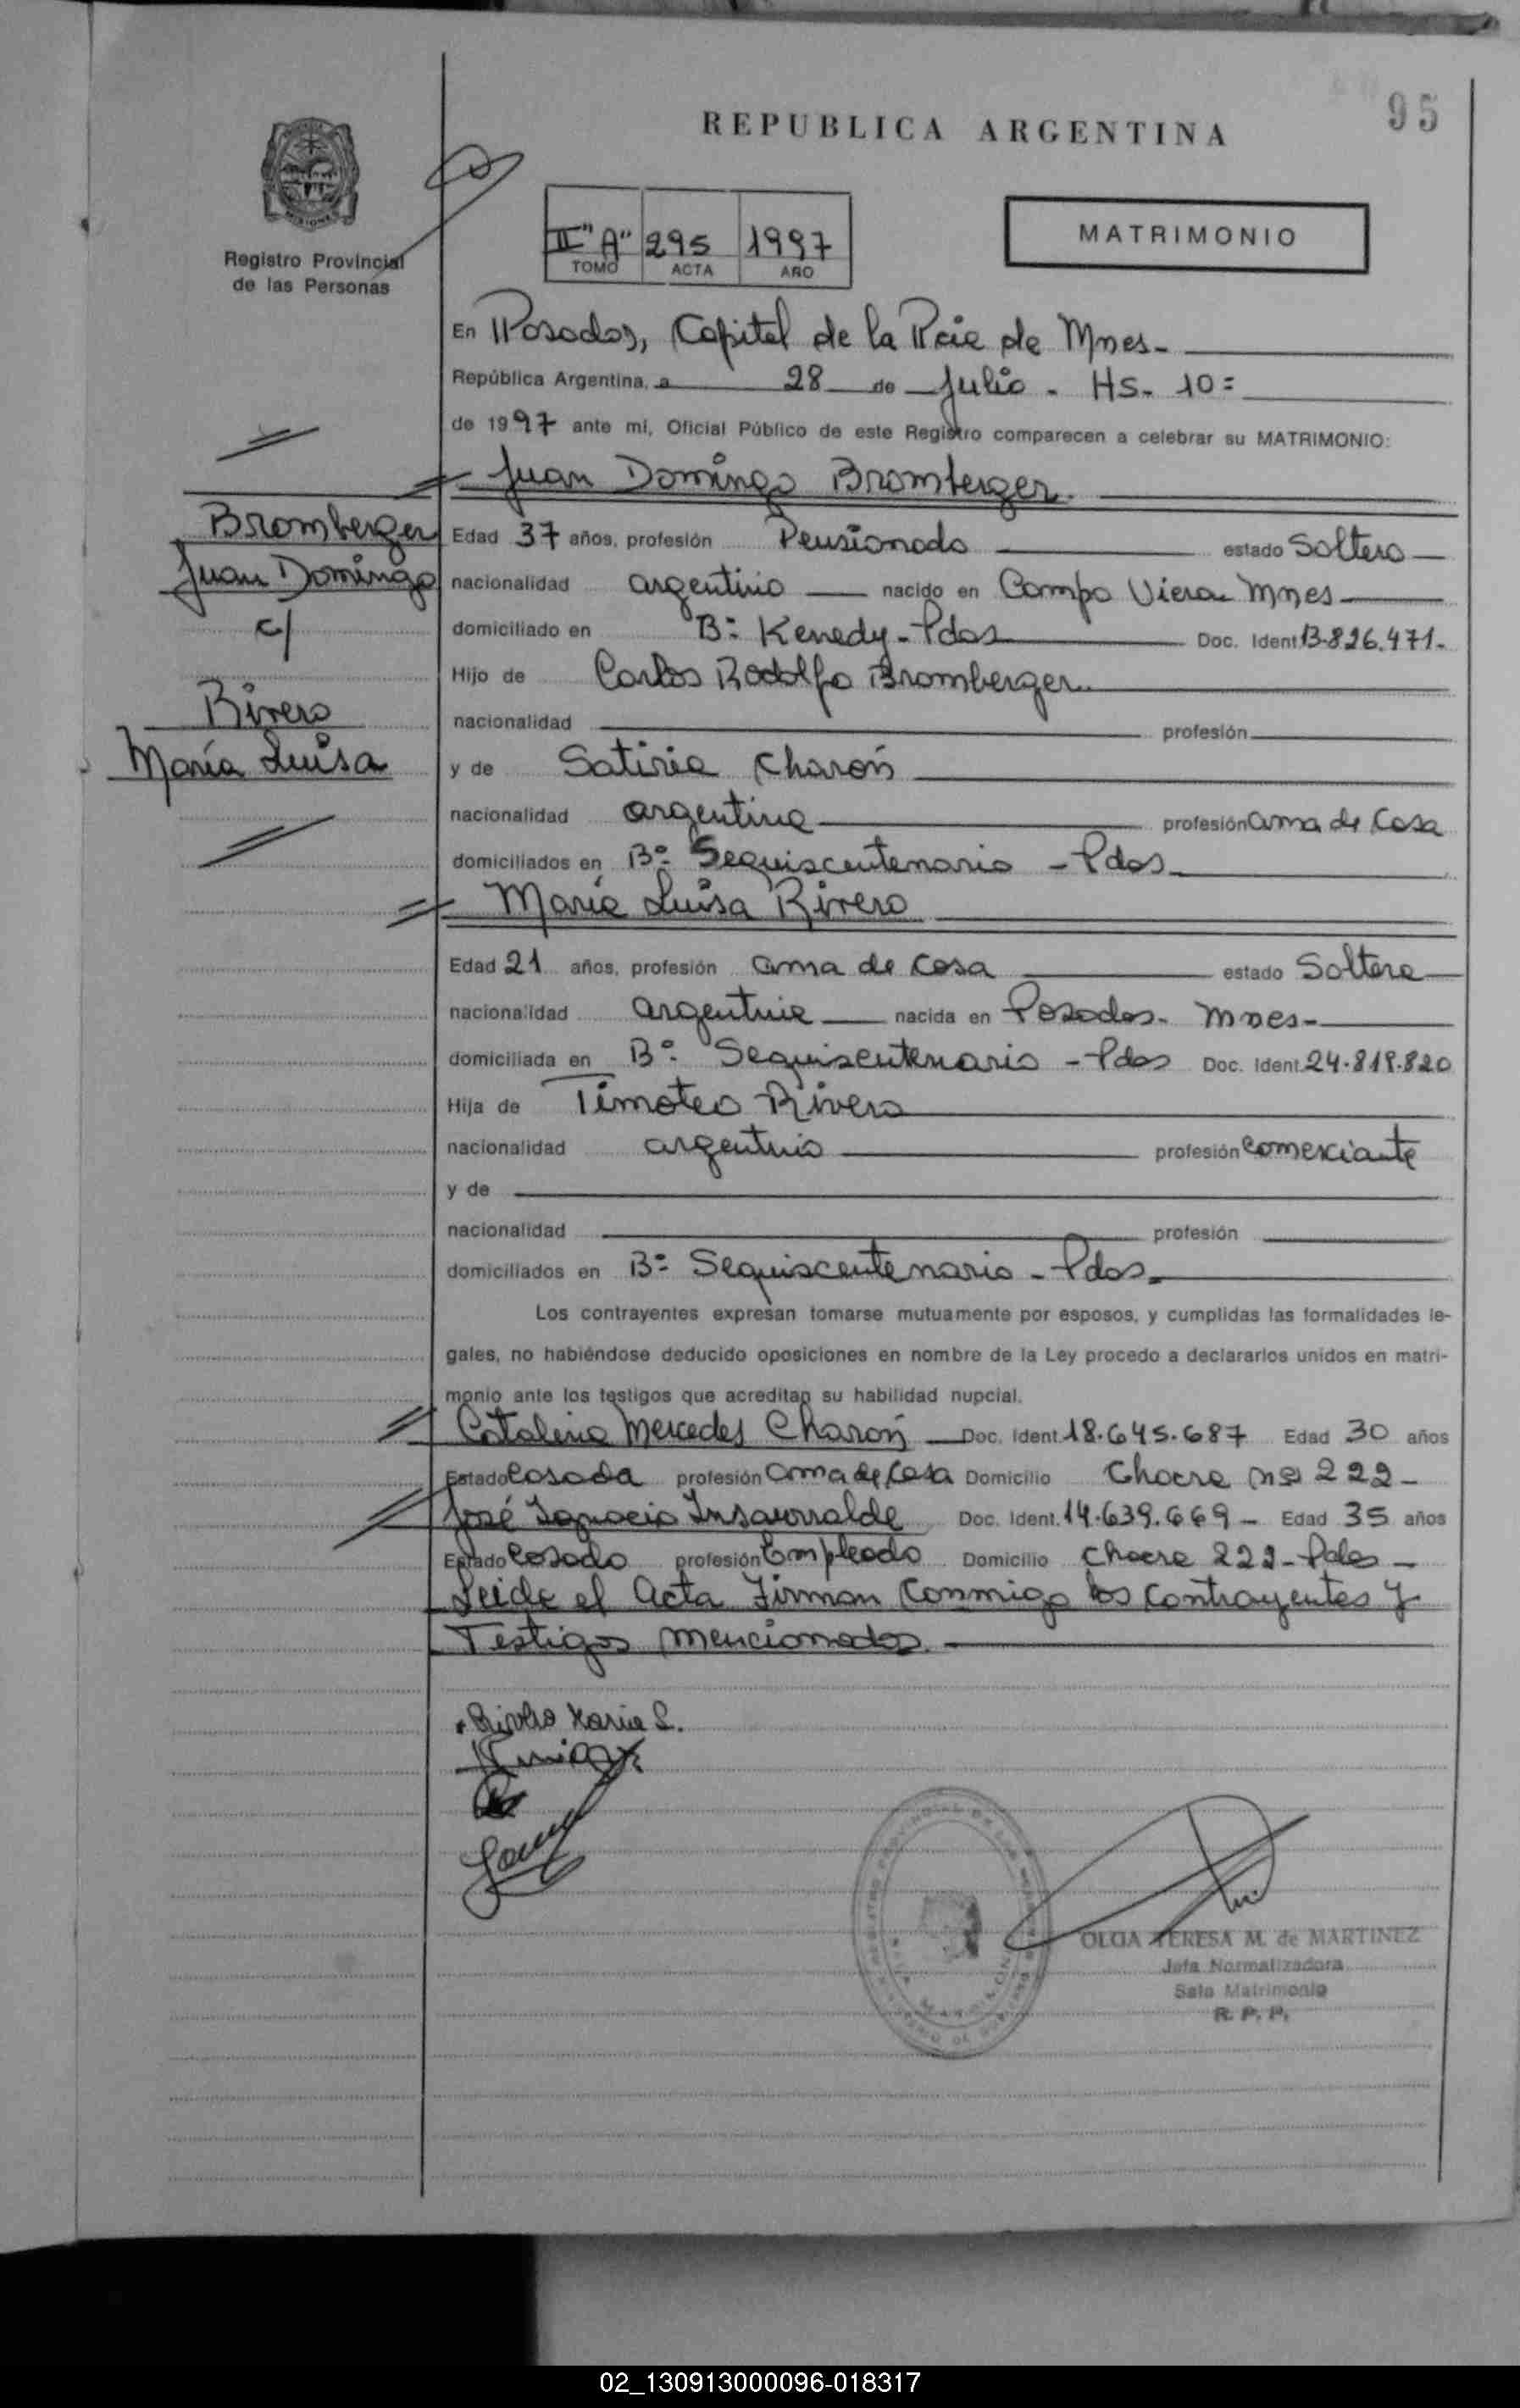 95
REPUBLICA ARGENTINA
MISIONES
Registro Provincial
de las Personas
II "A" 295 1997
TOMO ACTA AÑO
MATRIMONIO
En Posadas, Capital de la Pcia de Mnes-
República Argentina, a 28 de Julio - Hs- 10=
de 1997 ante mi, Oficial Público de este Registro comparecen a celebrar su MATRIMONIO:
Juan Domingo Bromberger.
Bromberger
Juan Domingo
c/
Rivero
María Luisa
Edad 37 años, profesión Pensionado estado Soltero
nacionalidad argentino nacido en Campo Viera Mnes
domiciliado en B: Kenedy - Pdas Doc. Ident 13.826.471.
Hijo de Carlos Rodolfo Bromberger
nacionalidad profesión
y de Satiria Charón
nacionalidad argentina profesión ama de Casa
domiciliados en B: Sequiscentenario - Pdas
María Luisa Rivero
Edad 21 años, profesión ama de casa estado Soltera
nacionalidad argentina nacida en Posadas - Mnes-
domiciliada en B: Sequiscentenario - Pdas Doc. Ident. 24.818.820
Hija de Timoteo Rivero
nacionalidad argentino profesión comerciante
y de
nacionalidad profesión
domiciliados en B: Sequiscentenario - Pdas.
Los contrayentes expresan tomarse mutuamente por esposos, y cumplidas las formalidades le-
gales, no habiéndose deducido oposiciones en nombre de la Ley procedo a declararlos unidos en matri-
monio ante los testigos que acreditan su habilidad nupcial.
Catalina Mercedes Charón Doc. Ident. 18.645.687 Edad 30 años
Estado Casada profesión ama de Casa Domicilio Chacra nº 222-
José Ignacio Insaurralde Doc. Ident. 14.639.669 - Edad 35 años
Estado Casado profesión Empleado Domicilio Chacra 222 - Pdas -
Leida el Acta Firman Conmigo los Contrayentes y
Testigos mencionados.
Rivero Maria L.
OLGA TERESA M. de MARTINEZ
Jefa Normalizadora
Sala Matrimonio
R. P. P.
02_130913000096-018317